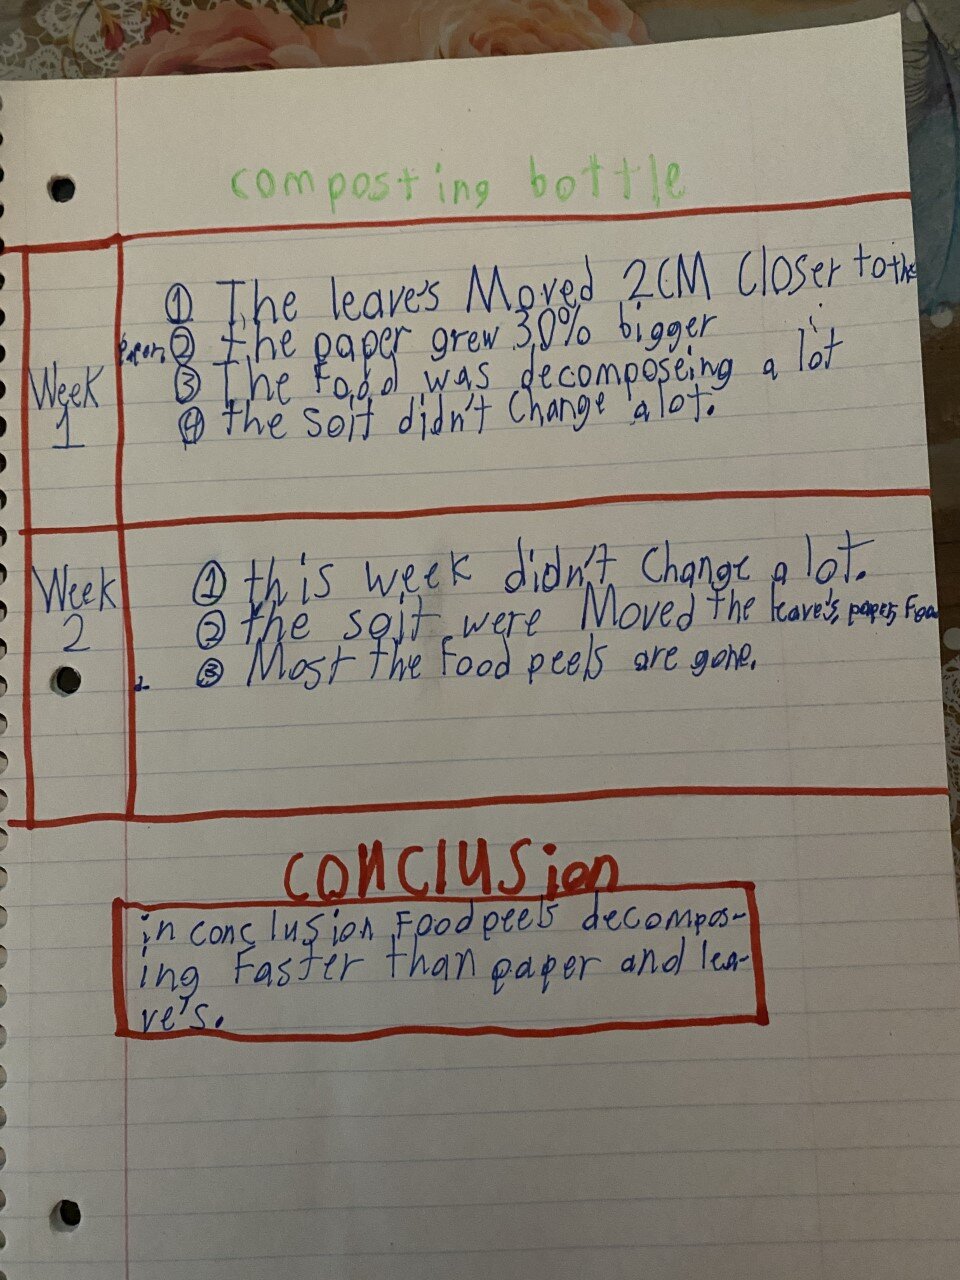 composting bottle
① The leave's Moved 2CM Closer to the
② the paper grew 30% bigger
Week 1
③ The Food was decomposeing a lot
④ the soit didn't Change a lot.
Week 2
① this week didn't Change a lot.
② the soit were Moved the leave's, paper, Food
③ Most the Food peels are gone.
CONCLUSion
in conclusion Foodpeels decompos-
ing Faster than paper and lea-
ve's.